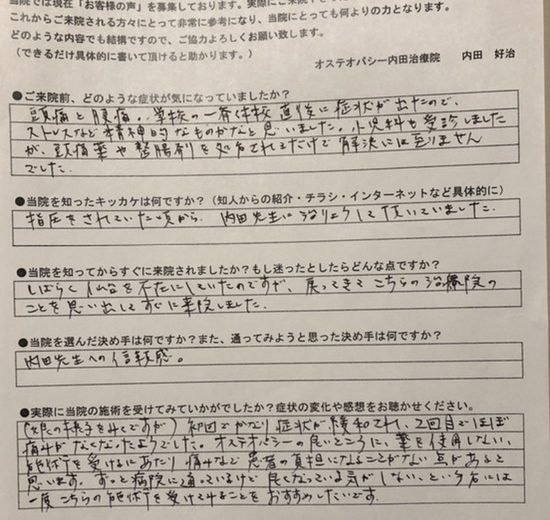 当院では現在「お客様の声」を募集しております。実際にご来院
これからご来院される方々にとって非常に参考になり、当院にとっても何よりの力となります。
どのような内容でも結構ですので、ご協力よろしくお願い致します。
（できるだけ具体的に書いて頂けると助かります。）
オステオパシー内田治療院　内田　好治
●ご来院前、どのような症状が気になっていましたか？
頭痛と腹痛。学校の一斉休校直後に症状が出たので、
ストレスなど精神的なものかなと思いました。小児科も受診しました
が、頭痛薬や整腸剤を処方されるだけで解決には至りません
でした。
●当院を知ったキッカケは何ですか？（知人からの紹介・チラシ・インターネットなど具体的に）
指圧をされていた頃から、内田先生に治りょうして頂いていました。
●当院を知ってからすぐに来院されましたか？もし迷ったとしたらどんな点ですか？
しばらく仙台を不在にしていたのですが、戻ってきてこちらの治療院の
ことを思い出してすぐに来院しました。
●当院を選んだ決め手は何ですか？また、通ってみようと思った決め手は何ですか？
内田先生への信頼感。
●実際に当院の施術を受けてみていかがでしたか？症状の変化や感想をお聴かせください。
様子をみてですが）初回でかなり症状が緩和され、2回目でほぼ
痛みがなくなったようでした。オステオパシーの良いところに、薬を使用しない、
施術を受けるにあたり痛みなど患者の負担になることがない点があると
思います。ずっと病院に通っているけど良くなっている気がしない、という方には
一度こちらの施術を受けてみることをおすすめしたいです。